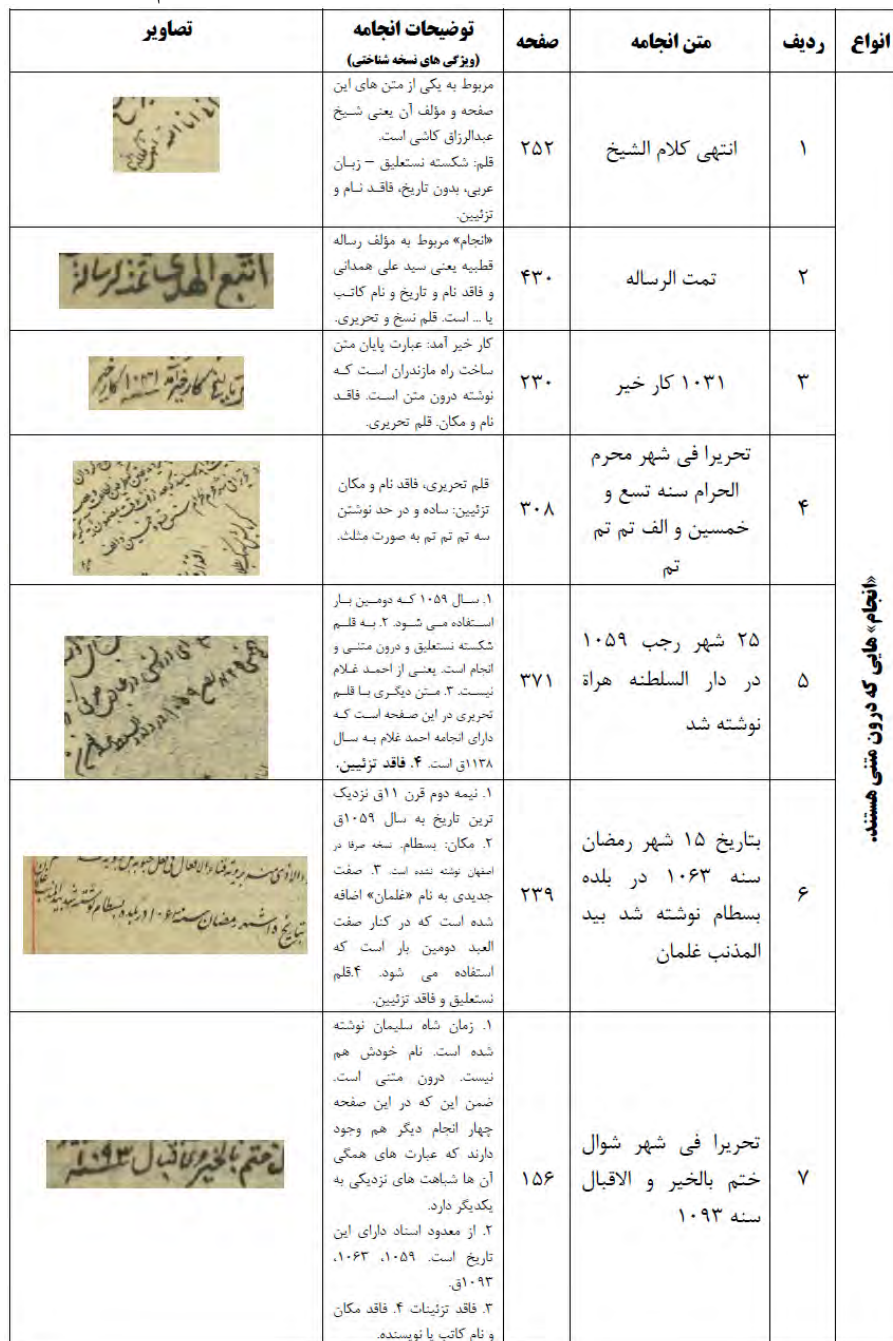 انواع
ردیف
متن انجامه
صفحه
توضیحات انجامه
(ویژگی های نسخه شناختی)
تصاویر
«انجام» هایی که درون متنی هستند.
۱
انتهی کلام الشیخ
۲۵۲
مربوط به یکی از متن های این
صفحه و مؤلف آن یعنی شیخ
عبدالرزاق کاشی است.
قلم: شکسته نستعلیق – زبان
عربی، بدون تاریخ، فاقد نام و
تزئیین.
۲
تمت الرساله
۴۳۰
«انجام» مربوط به مؤلف رساله
قطبیه یعنی سید علی همدانی
و فاقد نام و تاریخ و نام کاتب
یا ... است. قلم نسخ و تحریری.
اتبع الهدی تمت الرسالة
۳
۱۰۳۱ کار خیر
۲۳۰
کار خیر آمد: عبارت پایان متن
ساخت راه مازندران است که
نوشته درون متن است. فاقد
نام و مکان. قلم تحریری.
کار خیر آمد ۱۰۳۱ کار خیر
۴
تحریرا فی شهر محرم
الحرام سنه تسع و
خمسین و الف تم تم
تم
۳۰۸
قلم تحریری، فاقد نام و مکان
تزئیین: ساده و در حد نوشتن
سه تم تم تم به صورت مثلث.
۵
۲۵ شهر رجب ۱۰۵۹
در دار السلطنه هراة
نوشته شد
۳۷۱
۱. سال ۱۰۵۹ که دومین بار
استفاده می شود. ۲. به قلم
شکسته نستعلیق و درون متنی و
انجام است. یعنی از احمد غلام
نیست. ۳. متن دیگری با قلم
تحریری در این صفحه است که
دارای انجامه احمد غلام به سال
۱۱۳۸ق است. ۴. فاقد تزئیین.
۶
بتاریخ ۱۵ شهر رمضان
سنه ۱۰۶۳ در بلده
بسطام نوشته شد بید
المذنب غلمان
۲۳۹
۱. نیمه دوم قرن ۱۱ق نزدیک
ترین تاریخ به سال ۱۰۵۹ق
۲. مکان: بسطام. نسخه صرفا در
اصفهان نوشته نشده است. ۳. صفت
جدیدی به نام «غلمان» اضافه
شده است که در کنار صفت
العبد دومین بار است که
استفاده می شود. ۴.قلم
نستعلیق و فاقد تزئیین.
۷
تحریرا فی شهر شوال
ختم بالخیر و الاقبال
سنه ۱۰۹۳
۱۵۶
۱. زمان شاه سلیمان نوشته
شده است. نام خودش هم
نیست. درون متنی است.
ضمن این که در این صفحه
چهار انجام دیگر هم وجود
دارند که عبارت های همگی
آن ها شباهت های نزدیکی به
یکدیگر دارد.
۲. از معدود اسناد دارای این
تاریخ است. ۱۰۵۹، ۱۰۶۳،
۱۰۹۳ق.
۳. فاقد تزئینات ۴. فاقد مکان
و نام کاتب یا نویسنده.
ختم بالخیر و الاقبال سنه ۱۰۹۳